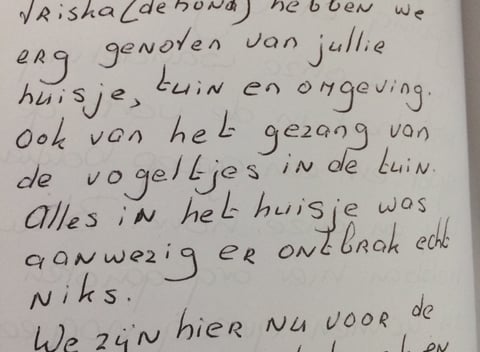 (de hond) hebben we
erg genoten van jullie
huisje, tuin en omgeving.
Ook van het gezang van
de vogeltjes in de tuin.
Alles in het huisje was
aanwezig er ontbrak echt
niks.
We zijn hier nu voor de